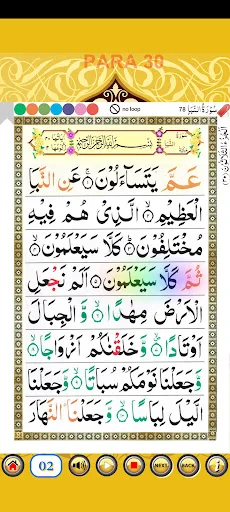 PARA 30
no loop
78 سُوْرَةُ النَّبَاِ
بِسْمِ اللّٰهِ الرَّحْمٰنِ الرَّحِيْمِ
عَمَّ يَتَسَآءَلُوْنَ ۝۱ عَنِ النَّبَاِ
الْعَظِيْمِ ۝۲ الَّذِيْ هُمْ فِيْهِ
مُخْتَلِفُوْنَ ۝۳ كَلَّا سَيَعْلَمُوْنَ ۝۴
ثُمَّ كَلَّا سَيَعْلَمُوْنَ ۝۵ اَلَمْ نَجْعَلِ
الْاَرْضَ مِهٰدًا ۝۶ وَّ الْجِبَالَ
اَوْتَادًا ۝۷ وَّ خَلَقْنٰكُمْ اَزْوَاجًا ۝۸
وَّ جَعَلْنَا نَوْمَكُمْ سُبَاتًا ۝۹ وَّ جَعَلْنَا
الَّيْلَ لِبَاسًا ۝۱۰ وَّ جَعَلْنَا النَّهَارَ
02
NEXT
BACK